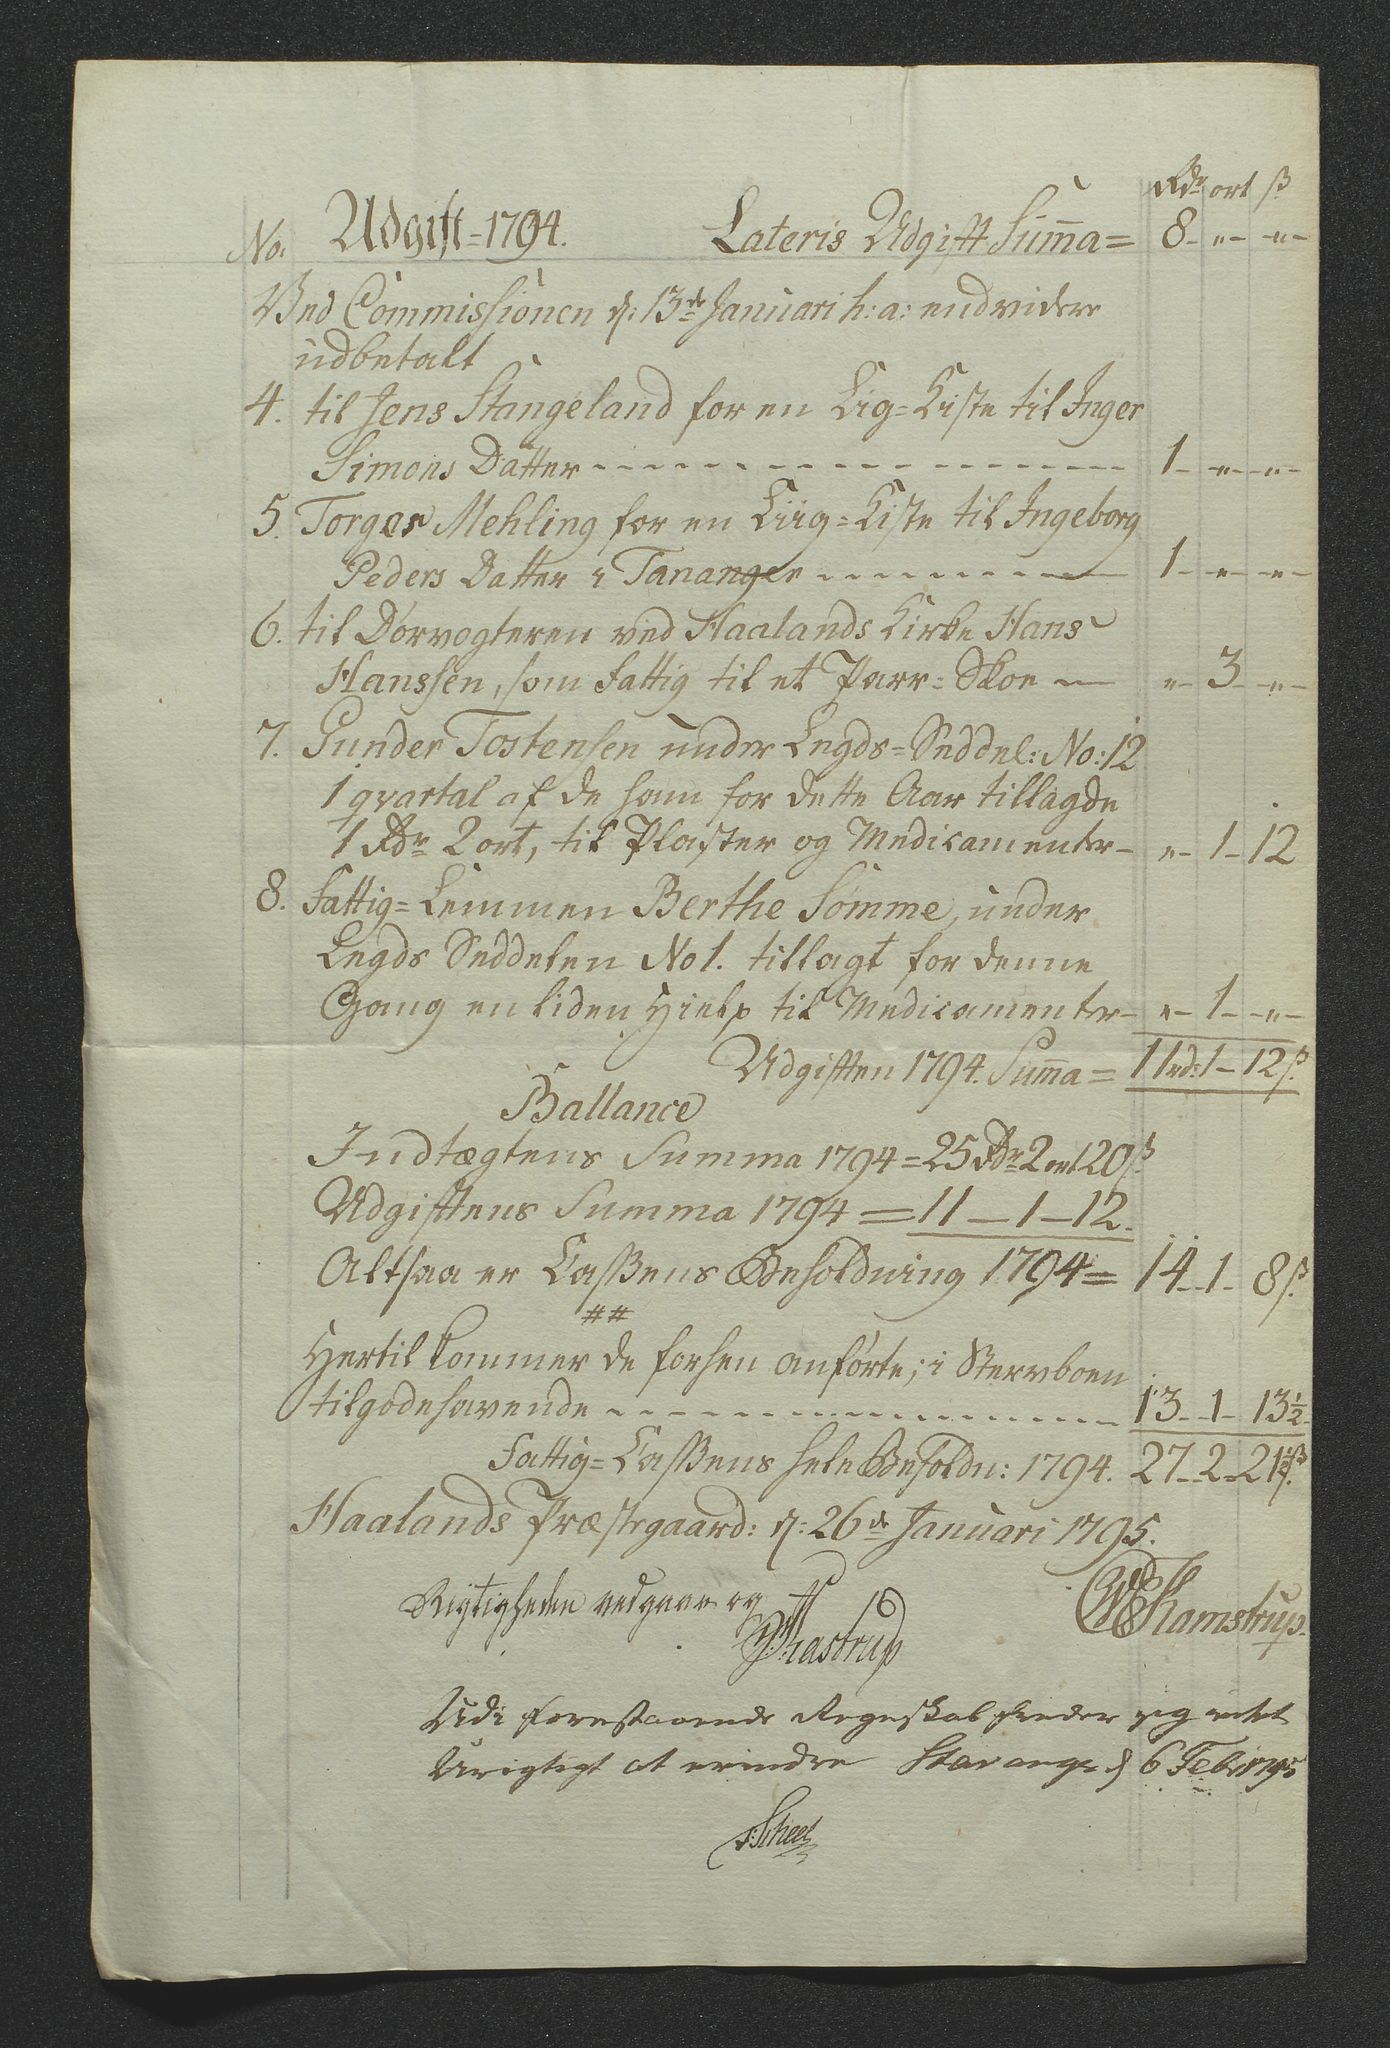 Rdr ort ß
No. Udgift = 1794. Lateris Udgift Sum̄a = 8 - " - " -
Ved Commissionen d: 13de Januari h: a: endvidere
udbetalt
4. til Jens Stangeland for en Lig = Kiste til Inger
Simons Datter - - - 1 - " - " -
5. Torger Mehling for en Liig = Kiste til Ingeborg
Peders Datter i Tananger - - - 1 - " - " -
6. til Dörvogteren ved Haalands Kirke Hans
Hanssen, som fattig til et Parr = Skoe - " - 3 - " -
7. Gunder Tostensen under Legds = Seddel: No: 12
1 qvartal af de ham for dette Aar tillagde
1 Rdr 2 ort, til Plaster og Medicamenter - " - 1 - 12
8. Fattig = Lemmen Berthe Sömme, under
Legds Seddelen No 1. tillagt for denne
Gang en liden Hielp til Medicamenter - " - 1 - " -
Udgiften 1794. Sum̄a = 11 rd: 1 - 12 ß.
Ballance
Indtægtens Summa 1794 = 25 Rdr 2 ort 20 ß
Udgiftens Summa 1794 = 11 - 1 - 12.
Altsaa er Cassens Beholdning 1794 = 14 - 1 - 8 ß.
##
Hertil kommer de forhen anförte, i Stervboen
tilgodehavende - - - 13 - 1 - 13 1/2
Fattig = Cassens hele Beholdn: 1794. 27 - 2 - 21 1/2 ß.
Haalands Præstegaard: d: 26de Januari 1795.
Rigtigheden vedgaaer og
Kamstrup.
Udi forestaaende Regnskab finder jeg intet
Urigtigt at erindre Stavanger d 6 Febr 1795
Scheel